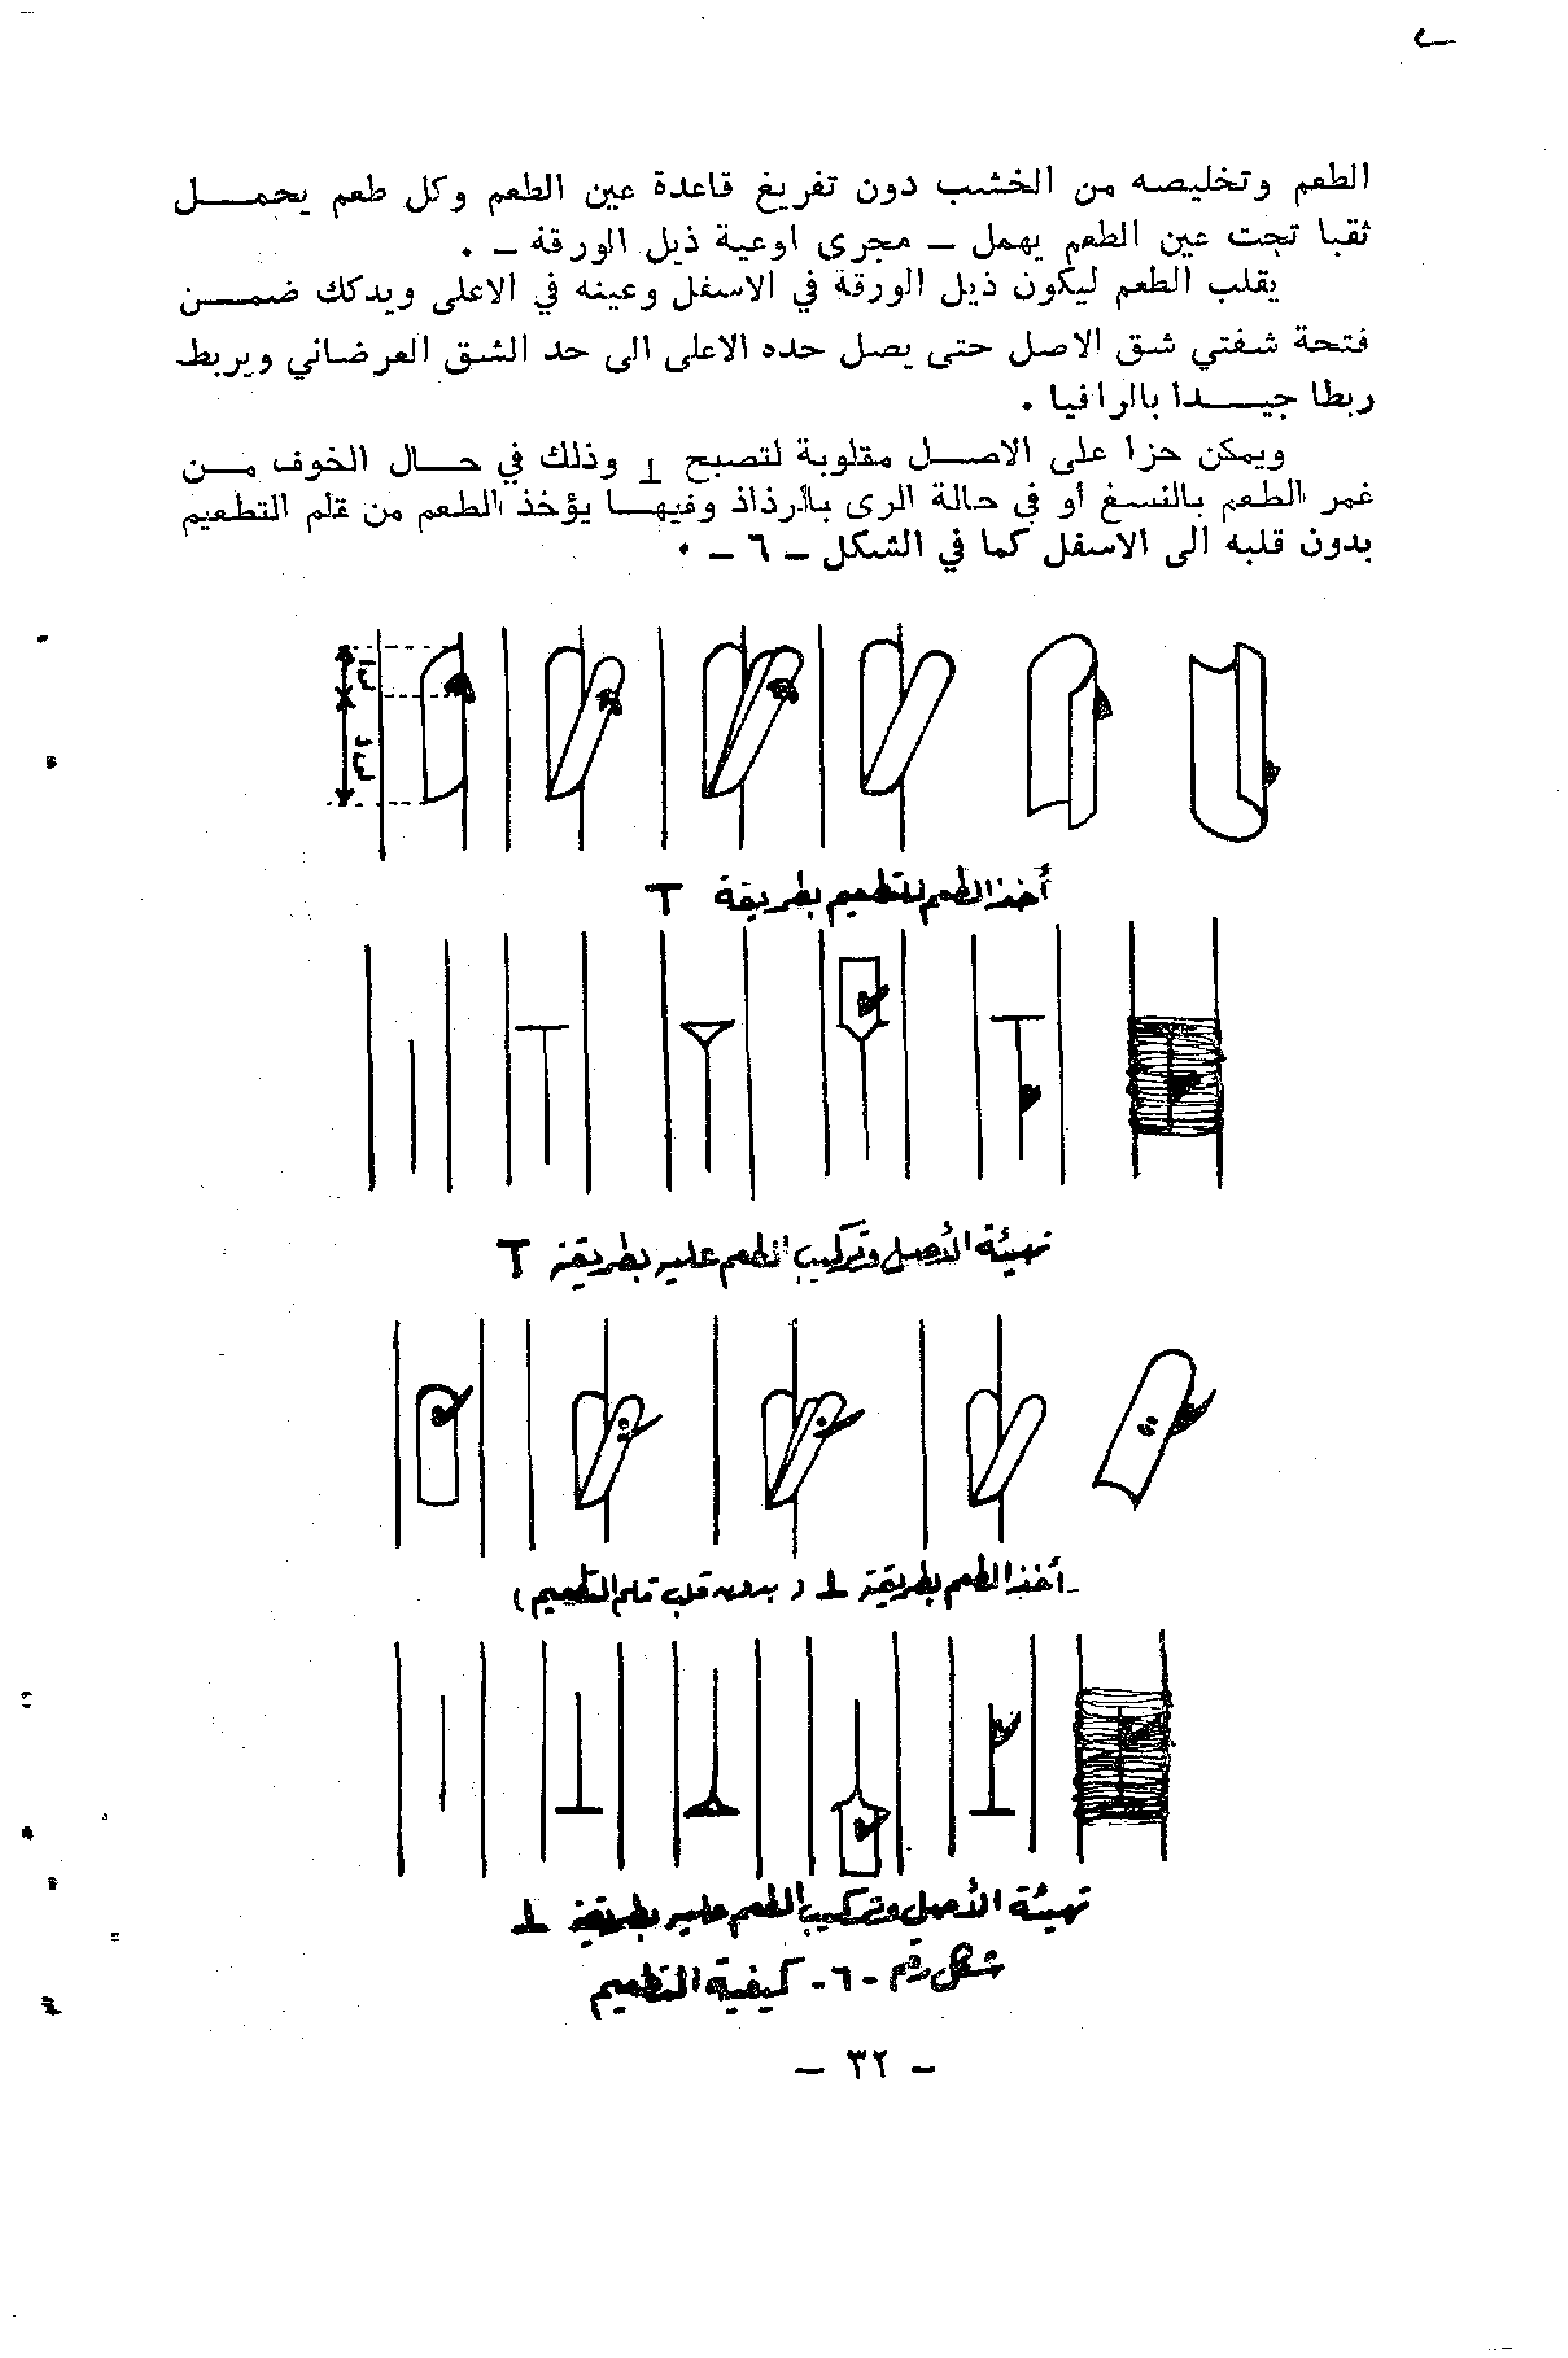 الطعم وتخليصه من الخشب دون تفريغ قاعدة عين الطعم وكل طعم يحمـــل
ثقبا تحت عين الطعم يهمل – مجرى اوعية ذيل الورقة – .
يقلب الطعم ليكون ذيل الورقة في الاسفل وعينه في الاعلى ويدكك ضمـــن
فتحة شفتي شق الاصل حتى يصل حده الاعلى الى حد الشق العرضاني ويربط
ربطا جيـــدا بالرافيا .
ويمكن حزا على الاصــل مقلوبة لتصبح ⊥ وذلك في حــال الخوف مــن
غمر الطعم بالنسغ أو في حالة الرى بالرذاذ وفيهــا يؤخذ الطعم من قلم التطعيم
بدون قلبه الى الاسفل كما في الشكل – ٦ – .
أخذ الطعم للتطعيم بطريقة T
تهيئة الأصل وتركيب الطعم عليه بطريقة T
أخذ الطعم بطريقة ⊥ ( بدون قلب قلم التطعيم )
تهيئة الأصل وتركيب الطعم عليه بطريقة ⊥
شكل رقم - ٦ - كيفية التطعيم
– ٣٢ –